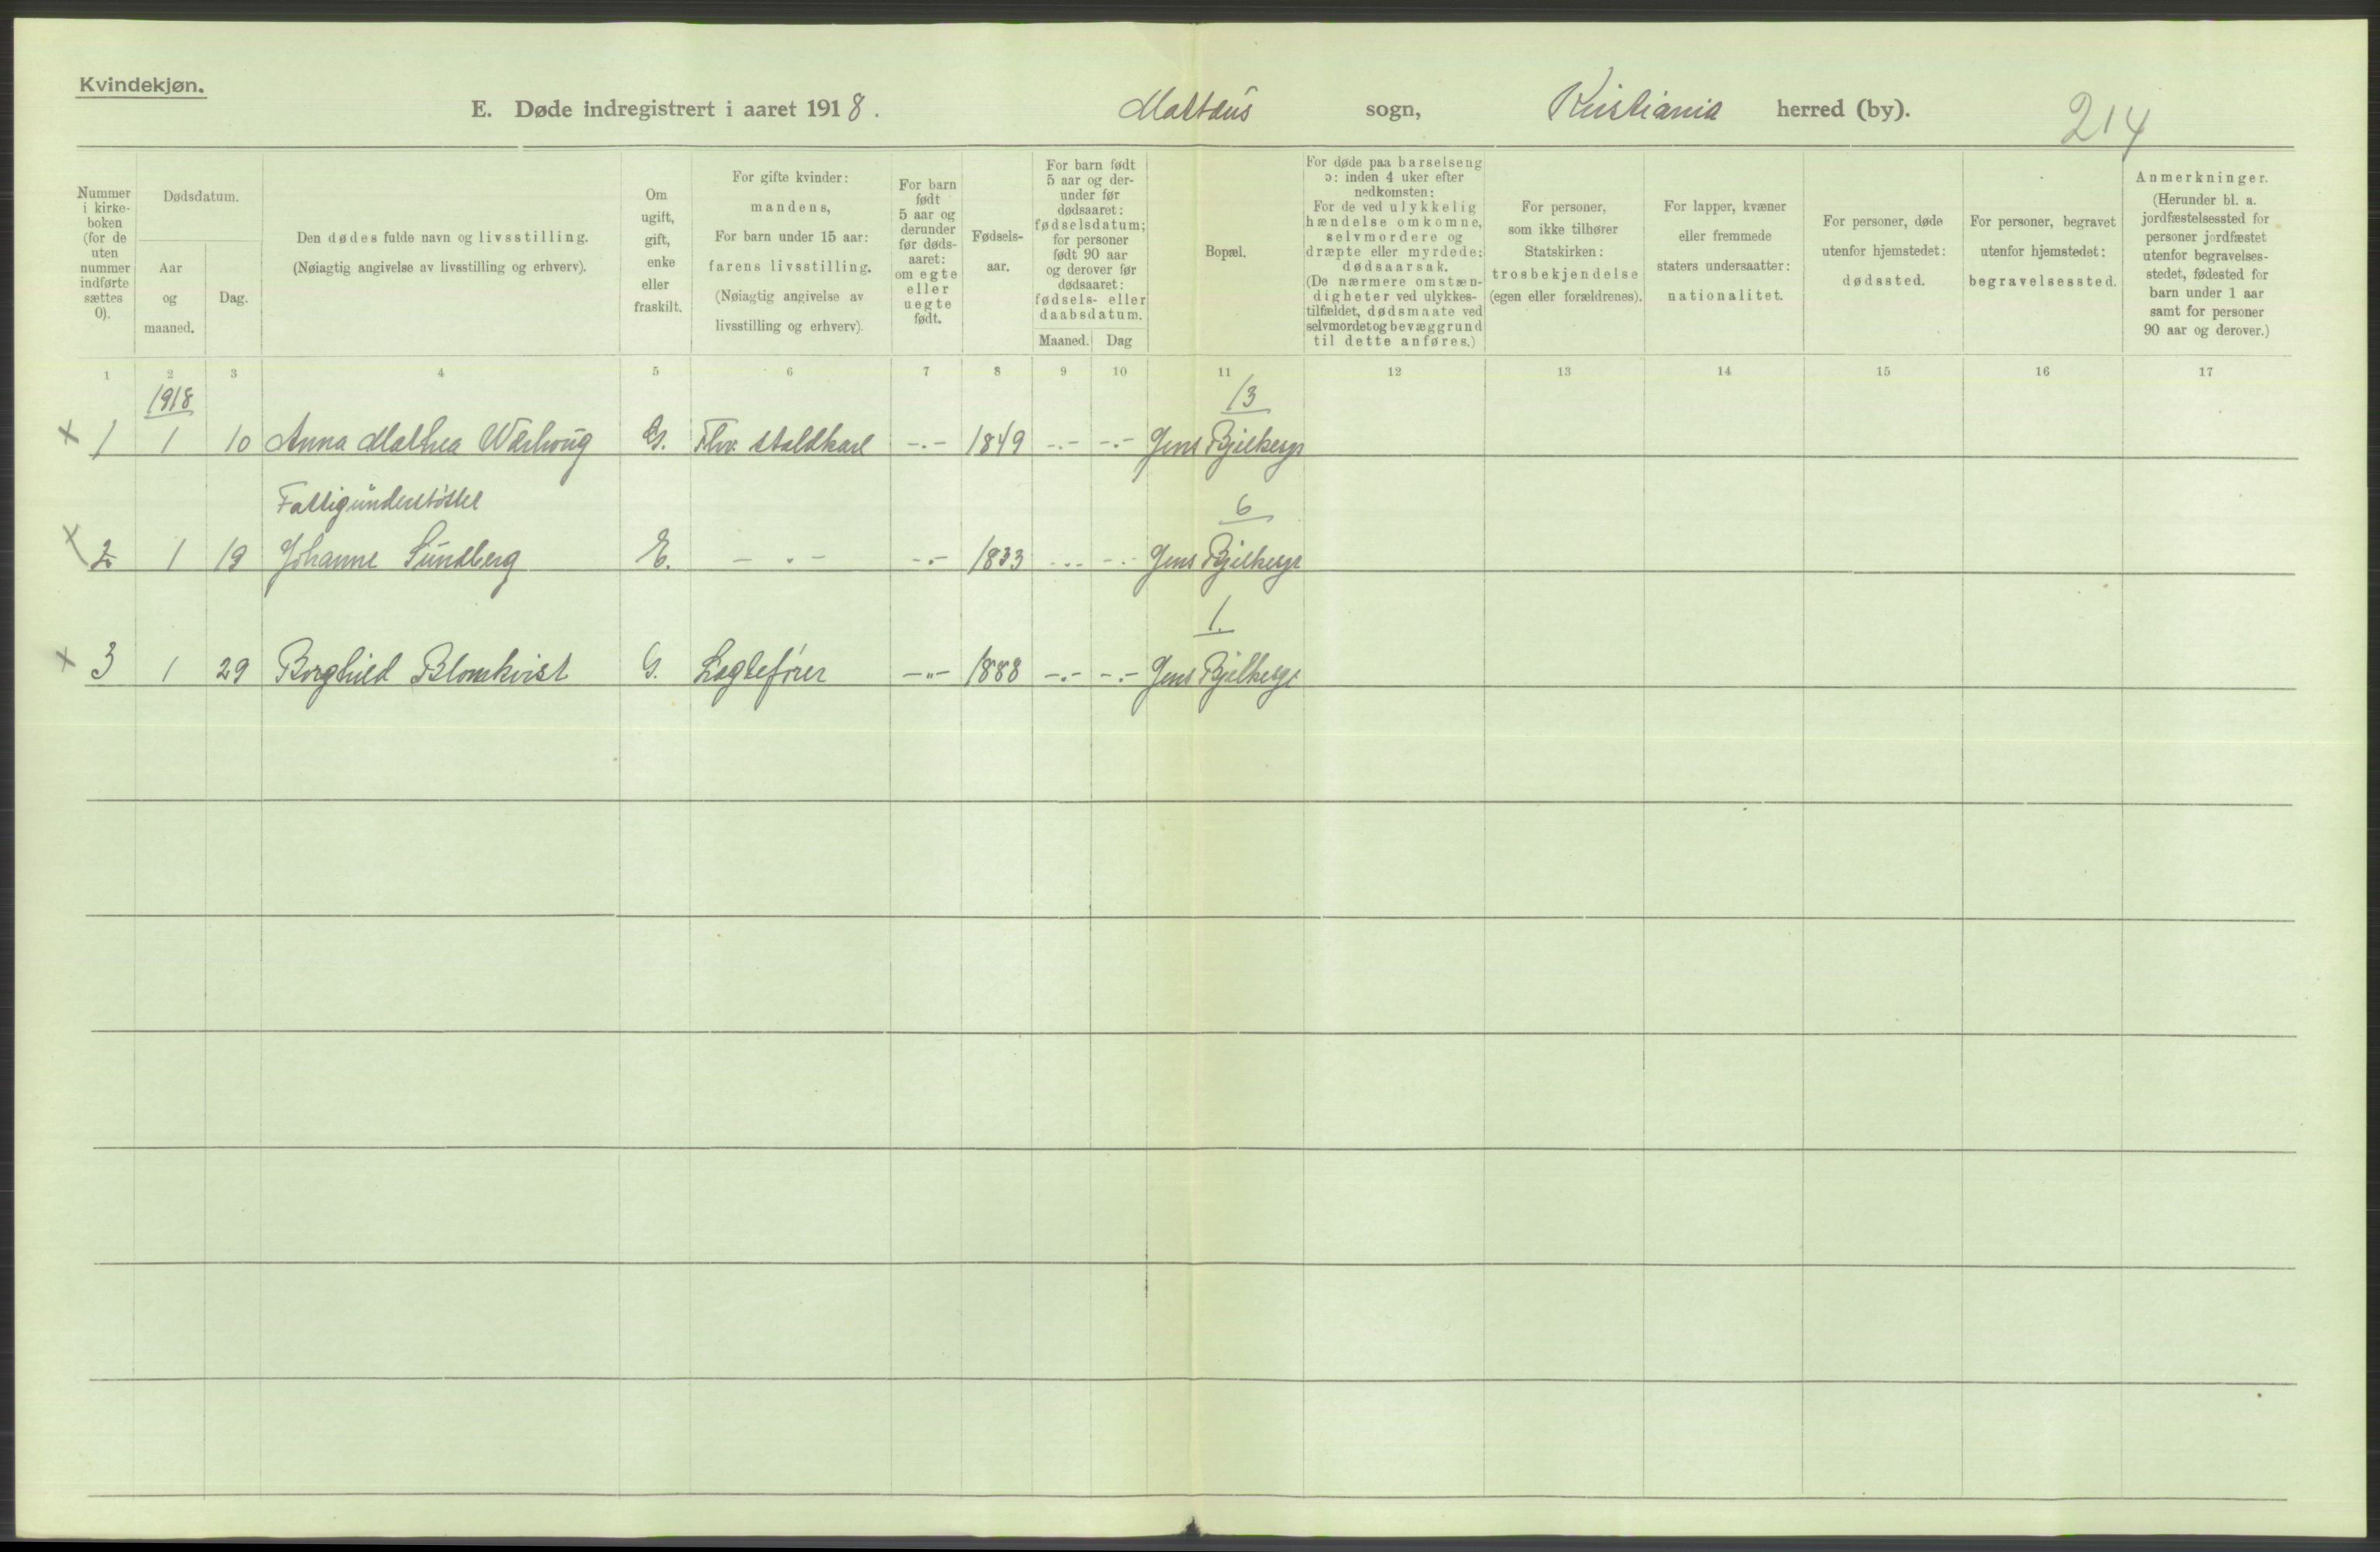 Kvindekjøn.
E. Døde indregistrert i aaret 1918. Mattæus sogn, Kristiania herred (by). 214
Nummer i kirke- boken (for de uten nummer indførte sættes 0).
Dødsdatum.
Aar og maaned.
Dag.
Den dødes fulde navn og livsstilling.
(Nøiagtig angivelse av livsstilling og erhverv).
Om ugift, gift, enke eller fraskilt.
For gifte kvinder:
mandens,
For barn under 15 aar:
farens livsstilling.
(Nøiagtig angivelse av
livsstilling og erhverv).
For barn
født
5 aar og
derunder
før døds-
aaret:
om egte
eller
uegte
født.
Fødsels-
aar.
For barn født
5 aar og der-
under før
dødsaaret:
fødselsdatum;
for personer
født 90 aar
og derover før
dødsaaret:
fødsels- eller
daabsdatum.
Maaned. Dag
Bopæl.
For døde paa barselseng
ɔ: inden 4 uker efter
nedkomsten:
For de ved ulykkelig
hændelse omkomne,
selvmordere og
dræpte eller myrdede:
dødsaarsak.
(De nærmere omstæn-
digheter ved ulykkes-
tilfældet, dødsmaate ved
selvmordet og bevæggrund
til dette anføres.)
For personer,
som ikke tilhører
Statskirken:
trosbekjendelse
(egen eller forældrenes).
For lapper, kvæner
eller fremmede
staters undersaatter:
nationalitet.
For personer, døde
utenfor hjemstedet:
dødssted.
For personer, begravet
utenfor hjemstedet:
begravelsessted.
Anmerkninger.
(Herunder bl. a.
jordfæstelsessted for
personer jordfæstet
utenfor begravelses-
stedet, fødested for
barn under 1 aar
samt for personer
90 aar og derover.)
1 2 3 4 5 6 7 8 9 10 11 12 13 14 15 16 17
1918 13
× 1 1 10 Anna Mathea G. Fhv. staldkarl -.- 1849 -.- -.- Jens Bjelkesgt
Fattigunderstøttet 6
× 2 1 19 Johanne Sundberg E. - . - -.- 1833 -.- -.- Jens Bjelkesgt
1.
× 3 1 29 Borghild Blomkvist G. Logtefører -"- 1888 -.- -.- Jens Bjelkesgt